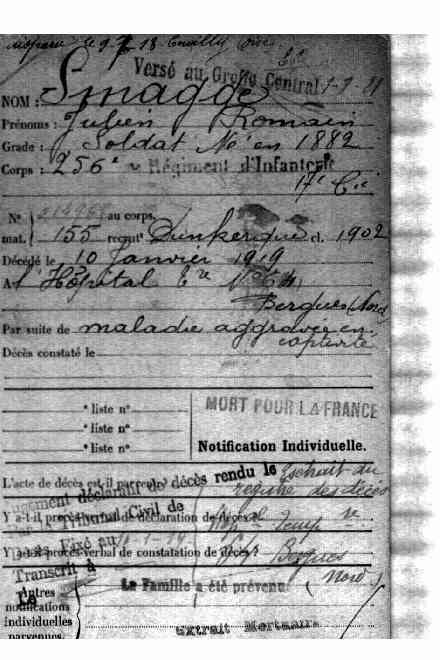 le 9.7.18
Versé au Greffe Central 1-9-21
NOM : Smagge
Prénoms : Julien Romain
Grade : Soldat Né en 1882
Corps : 256e Régiment d'Infanterie
17e Cie
No au corps.
mat. 155 recrutt Dunkerque cl. 1902
Décédé le 10 Janvier 1919
A l'Hôpital
Bergues (Nord
Par suite de maladie aggravée en
captivité
Décès constaté le
e liste no
e liste no
e liste no
MORT POUR LA FRANCE
Notification Individuelle.
L'acte de décès est-il parvenu? Extrait du
Jugement déclaratif de décès rendu le
registre des décès
par le Tribunal Civil de
Y a-t-il procès-verbal de déclaration de décès?
Décès Fixé au
Y a-t-il procès-verbal de constatation de décès? Bergues
Transcrit à
(Nord)
Le
La Famille a été prévenue
Autres
notifications
individuelles
parvenues.
extrait Mortuaire